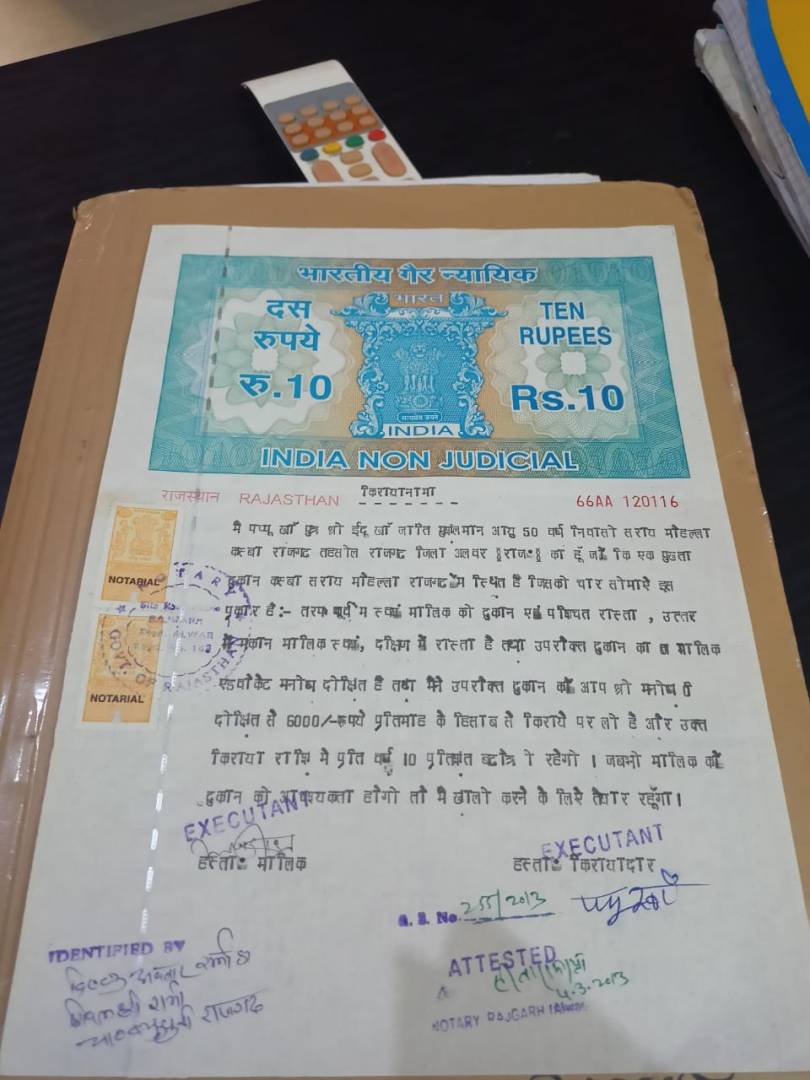 भारतीय गैर न्यायिक
भारत
दस
रुपये
रु.10
TEN
RUPEES
Rs.10
सत्यमेव जयते
INDIA
INDIA NON JUDICIAL
राजस्थान RAJASTHAN
किरायानामा
66AA 120116
मै पप्पू खाँ पुत्र श्री ईदू खाँ जाति मुसलमान आयु 50 वर्ष निवासी सराय मौहल्ला
कस्बा राजगढ तहसील राजगढ जिला अलवर [राज0] का हूँ जो कि एक पुख्ता
दुकान कस्बा सराय मौहल्ला राजगढ में स्थित है जिसकी चार सीमाऐ इस
प्रकार है:- तरफ पूर्व में स्वयं मालिक की दुकान एवं पश्चित रास्ता , उत्तर
में मकान मालिक स्वयं, दक्षिण में रास्ता है तथा उपरोक्त दुकान का मालिक
एडवोकेट मनोज दीक्षित है तथा मैने उपरोक्त दुकान को आप श्री मनोज
दीक्षित से 6000/-रूपये प्रतिमाह के हिसाब से किराये पर ली है और उक्त
किराया राशि में प्रति वर्ष 10 प्रतिशत बढौत्री रहेगी । जबभी मालिक को
दुकान की आवश्यकता होगी तो मै खाली करने के लिये तैयार रहूँगा।
NOTARIAL
NOTARIAL
NOTARY
GOVT. OF RAJASTHAN
EXECUTANT
EXECUTANT
हस्ता0 मालिक
हस्ता0 किरायादार
No. 255/2013
IDENTIFIED BY
ATTESTED
5.3.2013
NOTARY RAJGARH (Alwar)